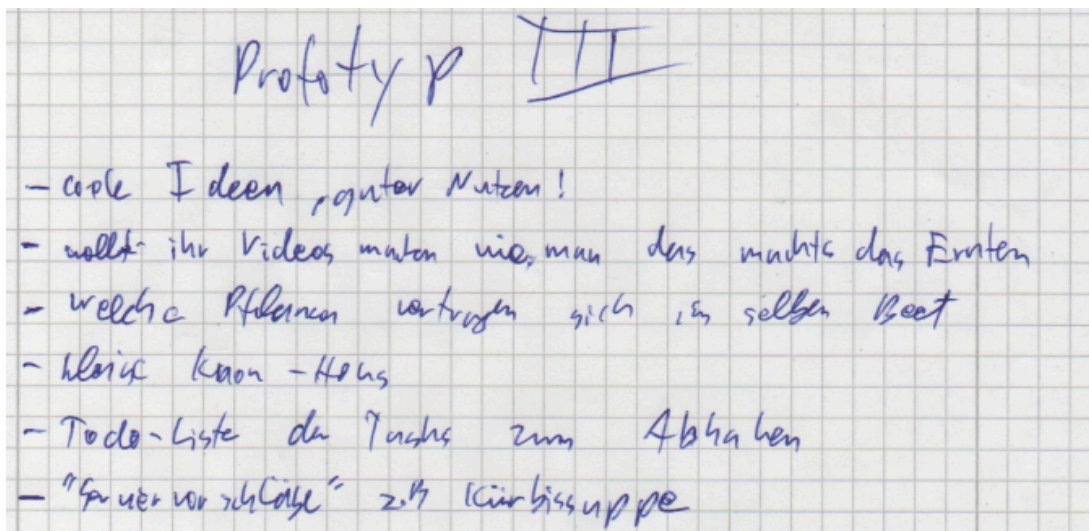 Prototyp III
- coole Ideen, guter Nutzen!
- wollt ihr Videos machen wie man das macht das Ernten
- welche Pflanzen vertragen sich im selben Beet
- kleine Know-Hows
- Todo-Liste der Tasks zum Abhaken
- "Serviervorschläge" z.B Kürbissuppe